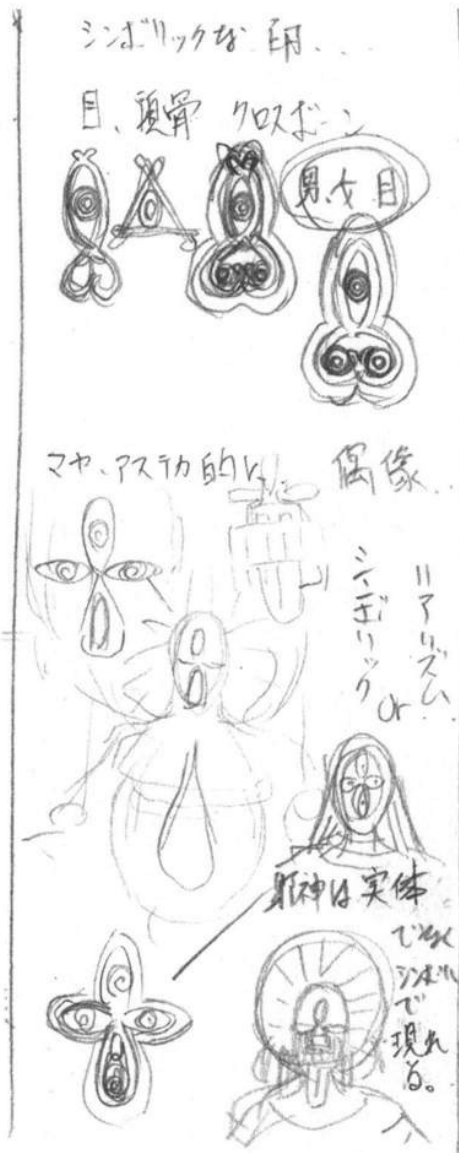 シンボリックな 印...
目、頭骨 クロスボーン
男、女 目
マヤ、アステカ的な
偶像..
リアリズム
or
シンボリック
邪神は実体
でなく
シンボル
で
現れ
る。